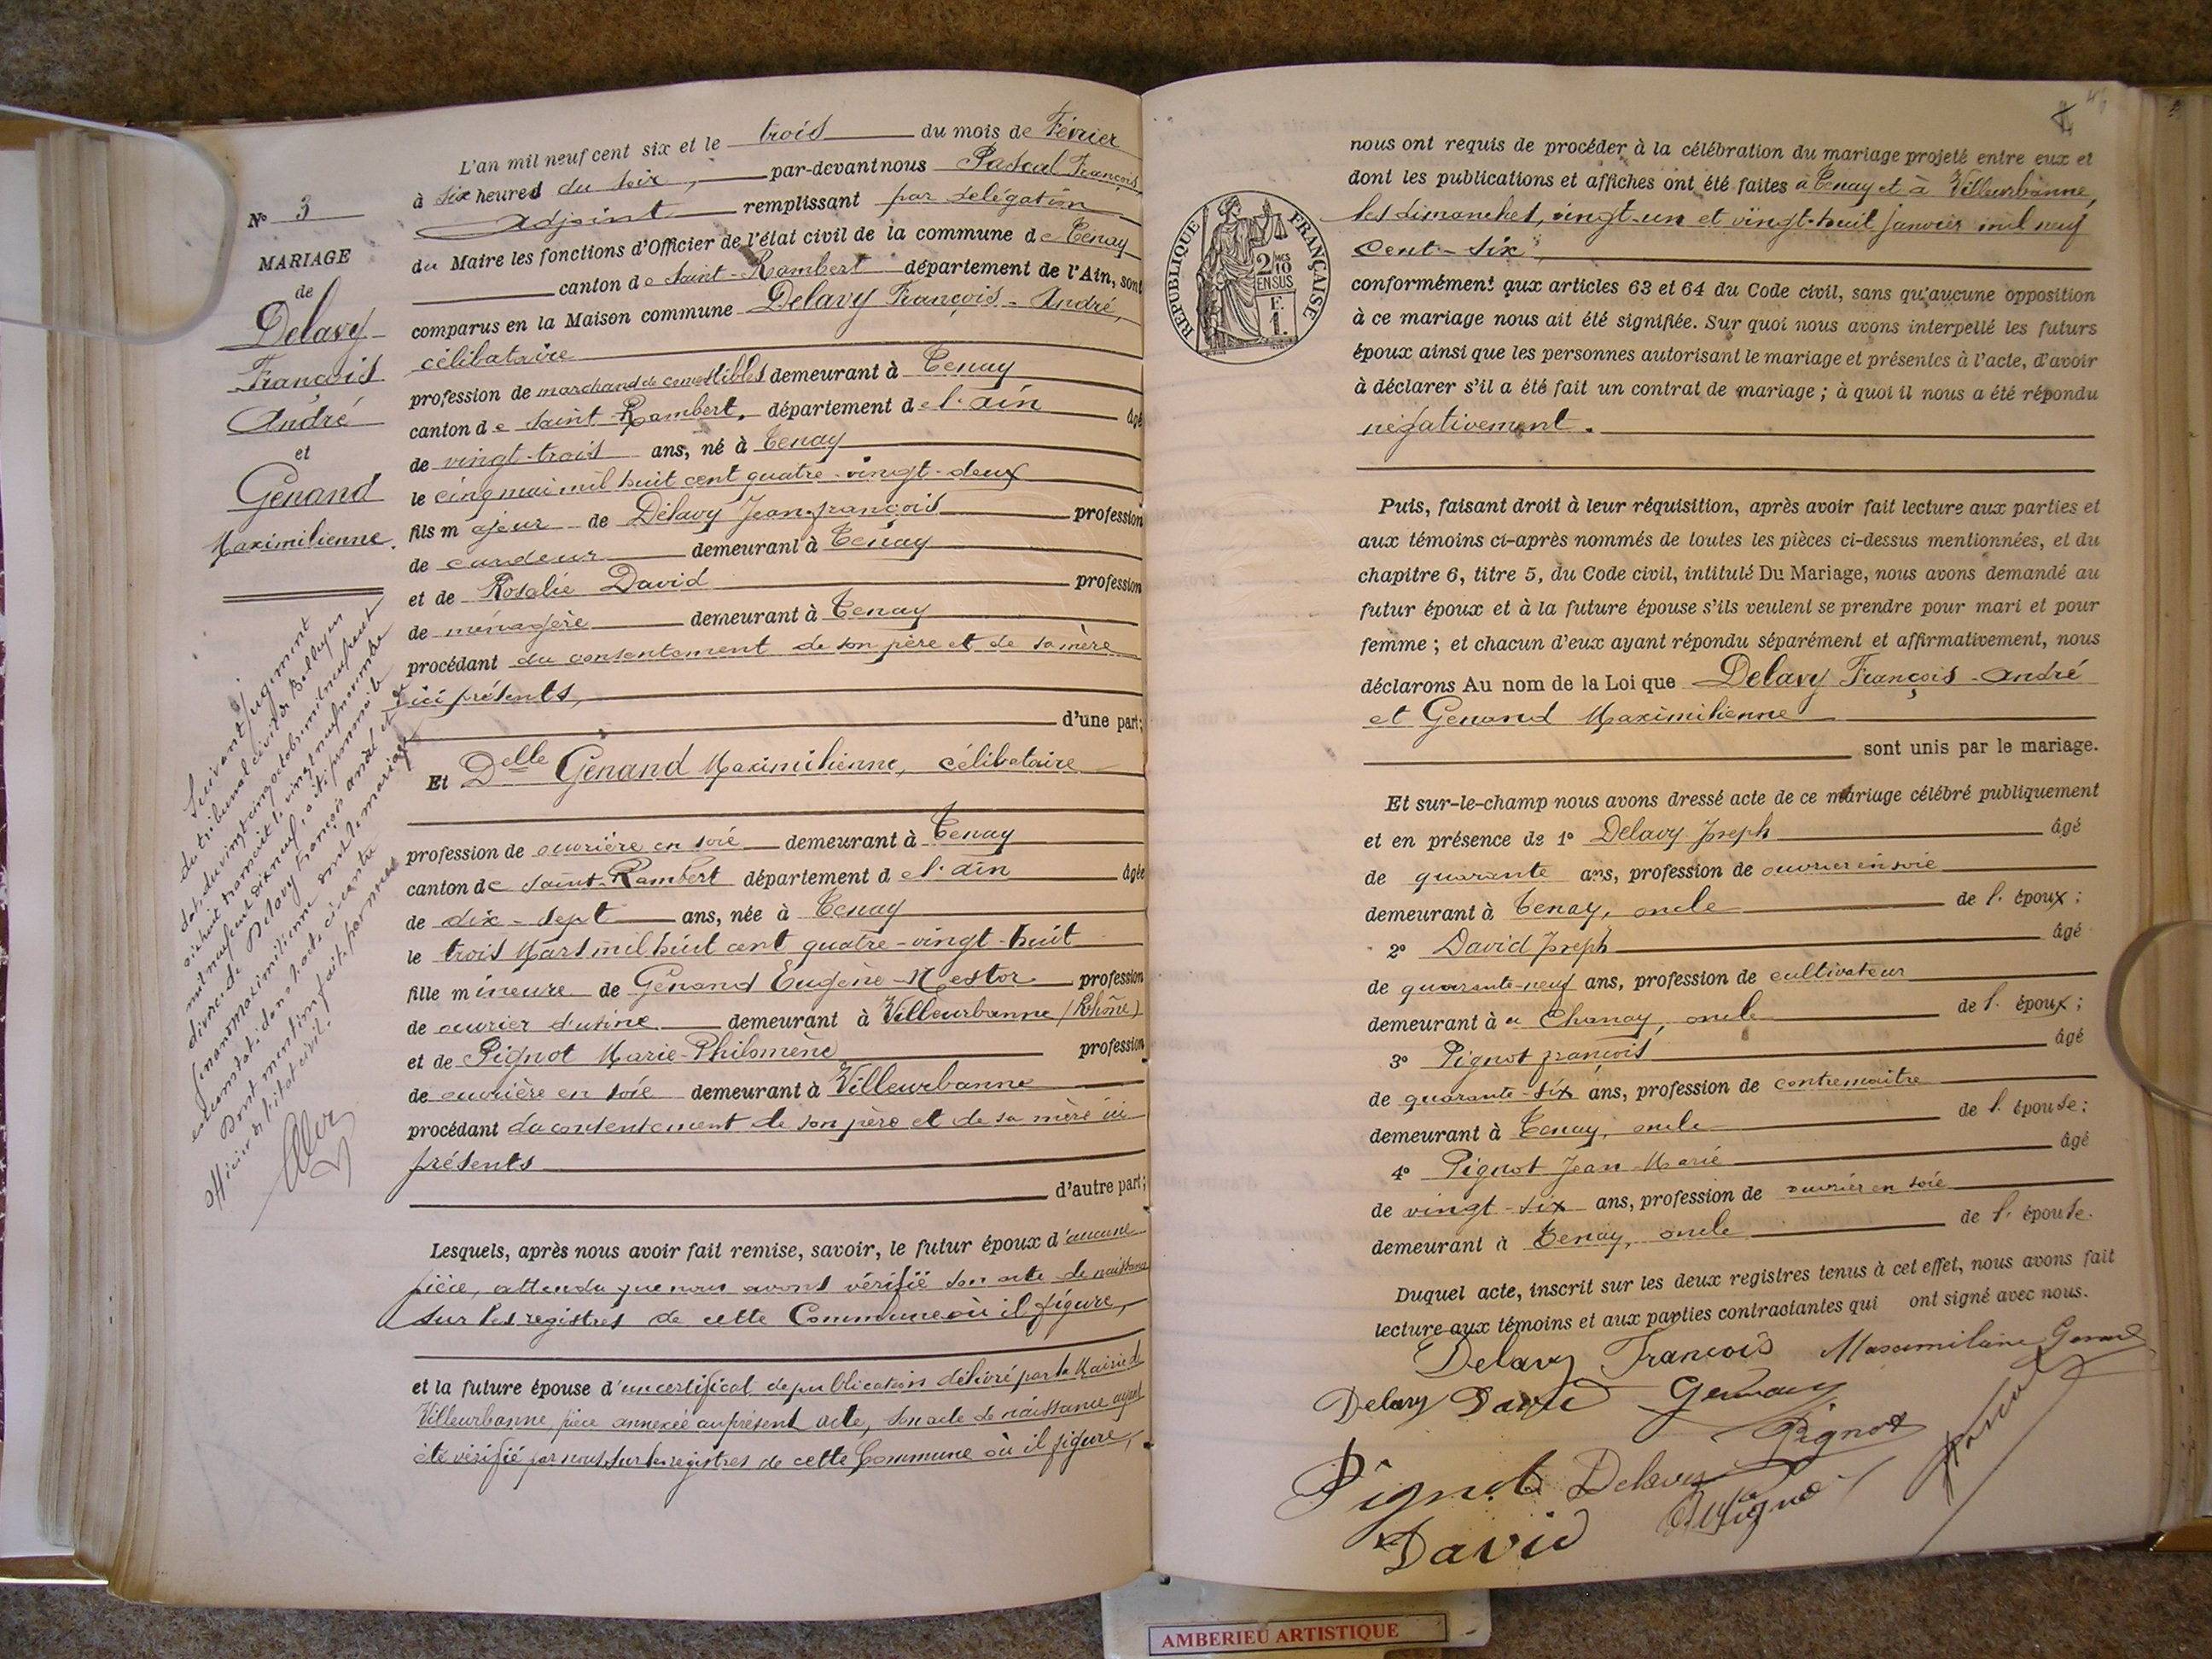 L'an mil neuf cent six et le trois du mois de Février
à six heures du soir, par-devant nous Pascal François
Adjoint remplissant par délégation
du Maire les fonctions d'Officier de l'état civil de la commune de Tenay
canton de Saint-Rambert département de l'Ain, sont
comparus en la Maison commune Delavy François-André,
célibataire
profession de marchand de comestibles demeurant à Tenay
canton de Saint Rambert, département de l'Ain âgé
de vingt-trois ans, né à Tenay
le cinq mai mil huit cent quatre-vingt-deux
fils majeur de Délavy Jean-françois profession
de cardeur demeurant à Tenay
et de Rosalie David profession
de ménagère demeurant à Tenay
procédant du consentement de son père et de sa mère
ici présents,
d'une part;
Et Delle Génand Maximilienne, célibataire
profession de ouvrière en soie demeurant à Tenay
canton de Saint-Rambert département de l'Ain âgée
de dix-sept ans, née à Tenay
le trois Mars mil huit cent quatre-vingt-huit
fille mineure de Génand Eugène-Nestor profession
de ouvrier d'usine demeurant à Villeurbanne (Rhône)
et de Pignot Marie-Philomène profession
de ouvrière en soie demeurant à Villeurbanne
procédant du consentement de son père et de sa mère ici
présents
d'autre part;
Lesquels, après nous avoir fait remise, savoir, le futur époux d'aucune
pièce, attendu que nous avons vérifié son acte de naissance
sur les registres de cette Commune où il figure,
et la future épouse d'un certificat de publication délivré par la Mairie de
Villeurbanne, pièce annexée au présent acte, son acte de naissance ayant
été vérifié par nous sur les registres de cette Commune où il figure,
N° 3
MARIAGE
de
Delavy
François
André
et
Génand
Maximilienne.
Suivant jugement
du tribunal civil de Belley en
date du vingt cinq octobre mil neuf cent
dix huit transcrit le vingt neuf novembre
mil neuf cent dix neuf, a été prononcé le
divorce de Delavy françois andré et de
genand maximilienne dont le mariage
est constaté dans l'acte ci contre
Dont mention faite par nous
officier de l'état civil.
nous ont requis de procéder à la célébration du mariage projeté entre eux et
dont les publications et affiches ont été faites à Tenay et à Villeurbanne,
les dimanches, vingt-un et vingt-huit janvier mil neuf
cent-six,
conformément aux articles 63 et 64 du Code civil, sans qu'aucune opposition
à ce mariage nous ait été signifiée. Sur quoi nous avons interpellé les futurs
époux ainsi que les personnes autorisant le mariage et présentes à l'acte, d'avoir
à déclarer s'il a été fait un contrat de mariage ; à quoi il nous a été répondu
négativement.
RÉPUBLIQUE FRANÇAISE
2 MES
10
EN SUS
F.
1.
Puis, faisant droit à leur réquisition, après avoir fait lecture aux parties et
aux témoins ci-après nommés de toutes les pièces ci-dessus mentionnées, et du
chapitre 6, titre 5, du Code civil, intitulé Du Mariage, nous avons demandé au
futur époux et à la future épouse s'ils veulent se prendre pour mari et pour
femme ; et chacun d'eux ayant répondu séparément et affirmativement, nous
déclarons Au nom de la Loi que Delavy François-André
et Genand Maximilienne
sont unis par le mariage.
Et sur-le-champ nous avons dressé acte de ce mariage célébré publiquement
et en présence de 1° Delavy Joseph âgé
de quarante ans, profession de ouvrier en soie
demeurant à Tenay, oncle de l'époux ;
2° David Joseph âgé
de quarante-neuf ans, profession de cultivateur
demeurant à Chanay, oncle de l'époux ;
3° Pignot françois âgé
de quarante-six ans, profession de contremaitre
demeurant à Tenay, oncle de l'épouse ;
4° Pignot Jean-Marie âgé
de vingt-six ans, profession de ouvrier en soie
demeurant à Tenay, oncle de l'épouse.
Duquel acte, inscrit sur les deux registres tenus à cet effet, nous avons fait
lecture aux témoins et aux parties contractantes qui ont signé avec nous.
Delavy François
Delavy David
Pignot
Pignot Delavy
David
Pascal
AMBERIEU ARTISTIQUE